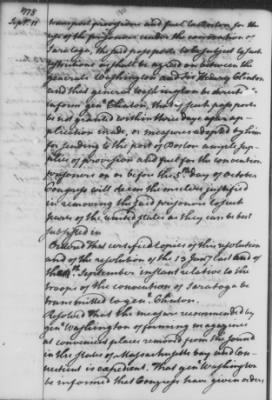 1778
Sept. 11
transport provisions and fuel to Boston for the
use of the prisoners under the convention of
Saratoga, the sd passports to be subject to such
restrictions as shall be agreed on between the
generals Washington and Sir Henry Clinton
and that general Washington be directed to
inform gen.l Clinton, that if such passports
be not granted within three days after ap-
plication made, or measures adopted by him
for sending to the port of Boston ample sup-
plies of provision and fuel for the convention
prisoners on or before the 5th day of October
Congress will deem themselves justified
in removing the said prisoners to such
parts of the united states as they can be best
subsisted in
Ordered that certified copies of this resolution
and of the resolution of the 19 Jany last and of
the September instant relative to the
troops of the convention of Saratoga be
transmitted to genl. Clinton.
Resolved that the measure recommended by
genl Washington of forming magazines
at convenient places removed from the sound
in the states of Massachusetts bay and Con-
necticut is expedient. That genl Washington
be informed that Congress have given orders